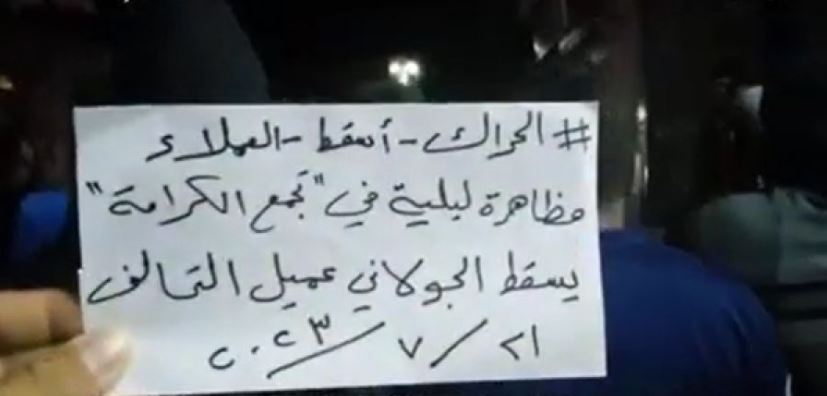 # الحراك-أسقط-العملاء
مظاهرة ليلية في "تجمع الكرامة"
يسقط الجولاني عميل التحالف
٢١/٧/٢٠٢٣